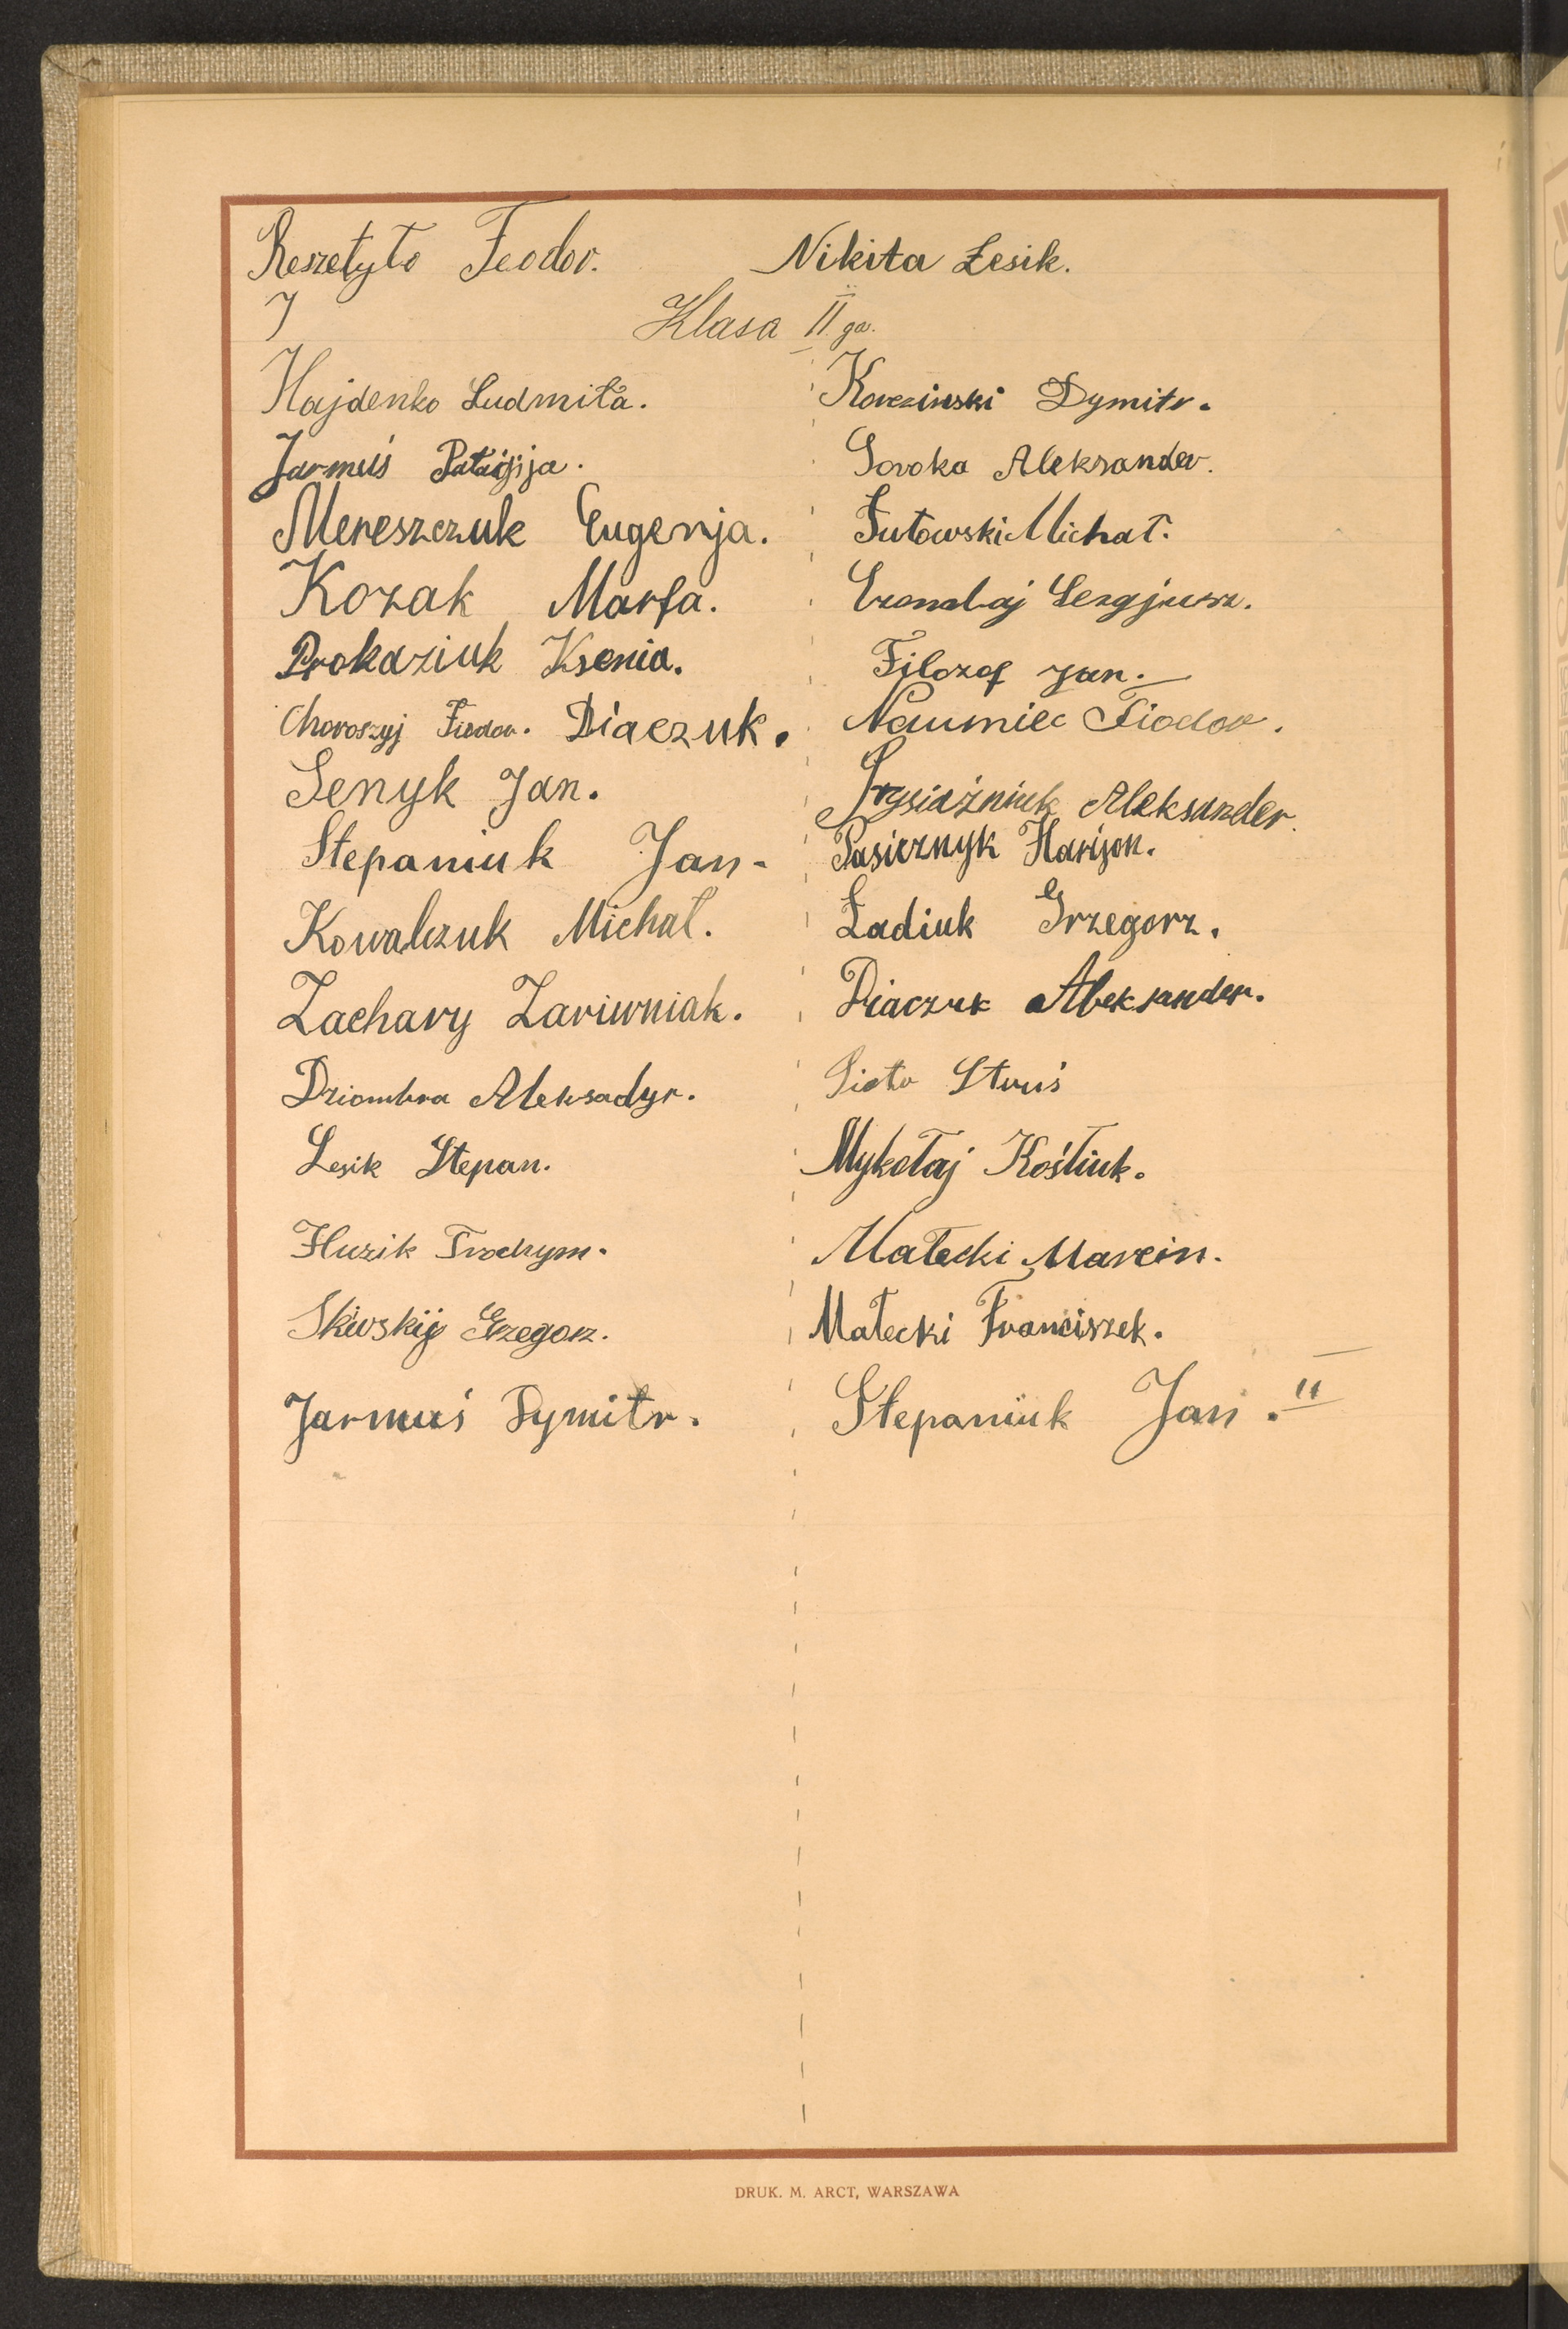 Reszetyło Feodor.
Nikita Lesik.
Klasa II ga.
Hajdenko Ludmiła.
Jarmuś
Mereszczuk Eugenja.
Kozak Marfa.
Prokaziuk Ksenia.
Choroszyj Fiodor. Diaczuk.
Senyk Jan.
Stepaniuk Jan-
Kowalczuk Michał.
Zachary Zariwniak.
Dziombra Aleksadyr.
Lesik Stepan.
Huzik Trochym.
Skiwskij Grzegorz.
Jarmuś Dymitr.
Korczinski Dymitr.
Soroka Aleksander.
Michał.
Sergjusz.
Filozof Jan.
Naumiec Fiodor.
Aleksander.
Pasicznyk Harijon.
Ładiuk Grzegorz.
Diaczuk Aleksander.
Piotr Struś
Mykołaj Kośtiuk.
Małecki Marcin.
Małecki Franciszek.
Stepaniuk Jan. II
DRUK. M. ARCT, WARSZAWA